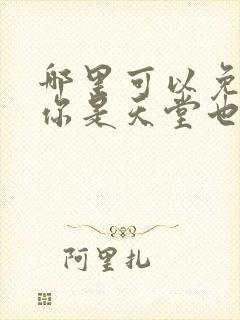 哪里可以免
你是天堂也
阿里扎